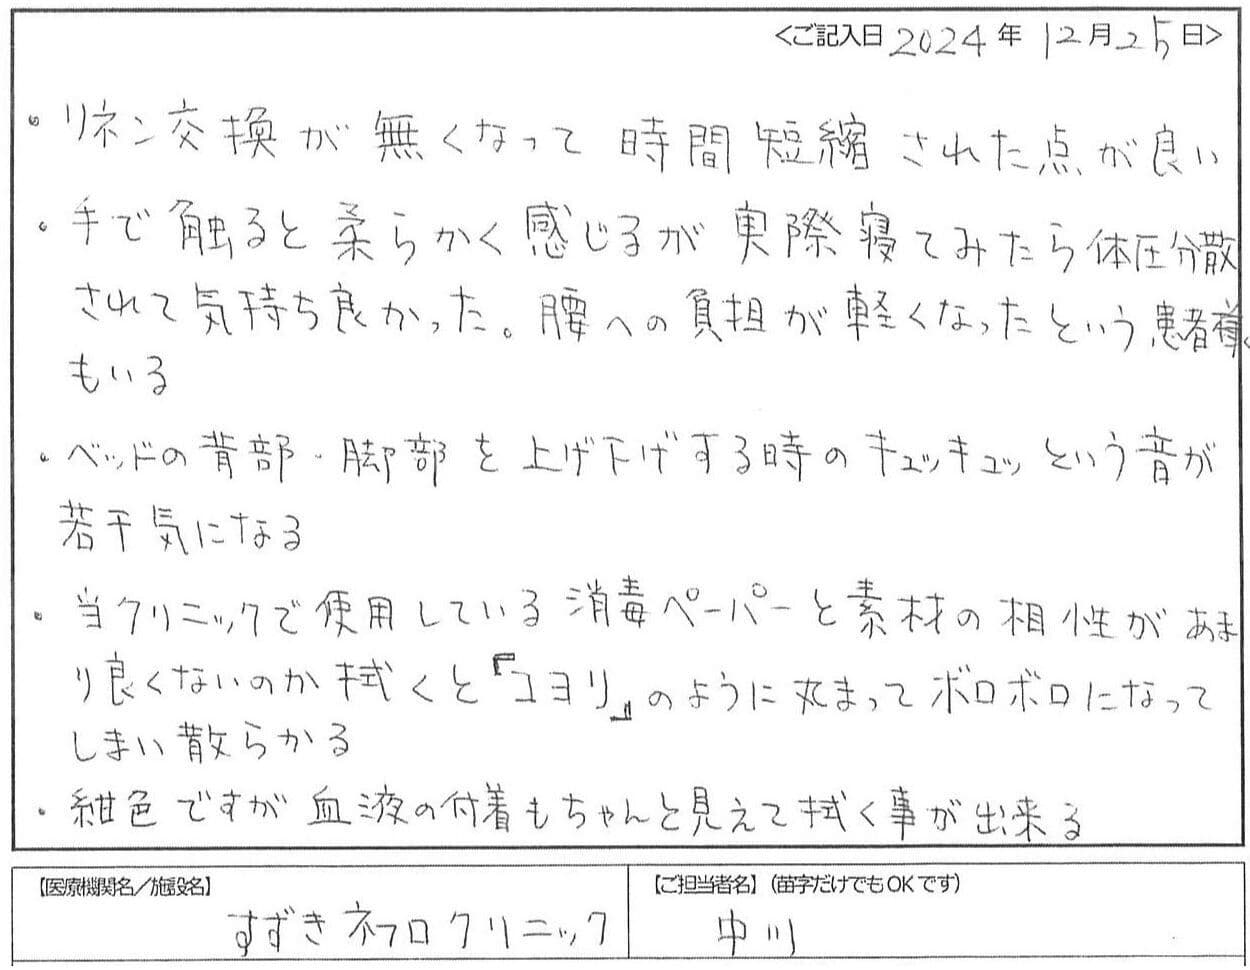 <ご記入日 2024 年 12月25日>
・リネン交換が無くなって時間短縮された点が良い
・手で触ると柔らかく感じるが実際寝てみたら体圧分散
されて気持ち良かった。腰への負担が軽くなったという患者様
もいる
・ベッドの背部・脚部を上げ下げする時のキュッキュッという音が
若干気になる
・当クリニックで使用している消毒ペーパーと素材の相性があま
り良くないのか拭くと『コヨリ』のように丸まってボロボロになって
しまい散らかる
・紺色ですが血液の付着もちゃんと見えて拭く事が出来る
【医療機関名/施設名】
すずきネフロクリニック
【ご担当者名】(苗字だけでもOKです)
中川